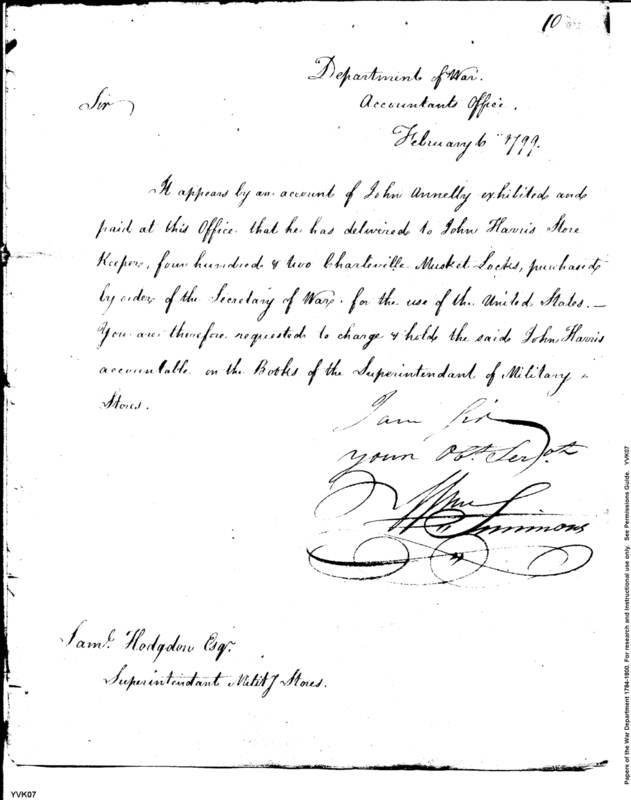 10
Department of War.
Sir
Accountants Office.
February 6th 1799.
It appears by an account of John Annelly exhibited and
paid at this Office that he has delivered to John Harris Store
Keeper, four hundred & two Charleville Musket Locks, purchased
by order of the Secretary of War for the use of the United States. —
You are therefore requested to charge & hold the said John Harris
accountable on the Books of the Superintendant of Military
Stores.
I am Sir
your Obt. Servt.
Wm Simmons
Saml. Hodgdon Esqr.
Superintendant Mility Stores.
YVK07
Papers of the War Department 1784-1800. For research and instructional use only. See Permissions Guide. YVK07